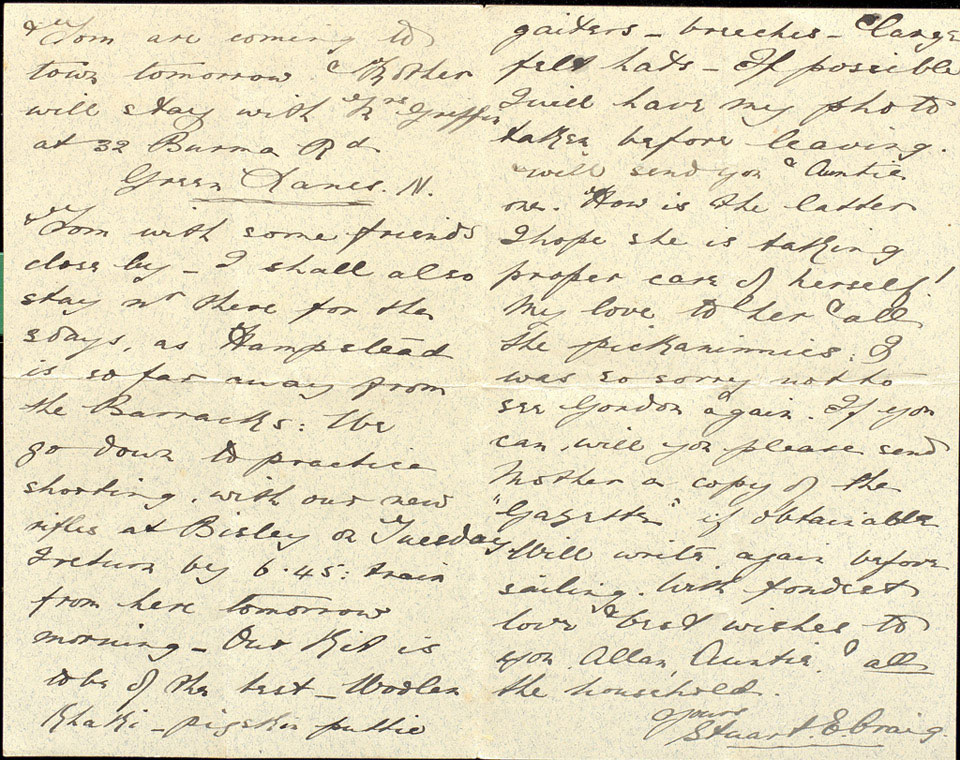 & Tom are coming to
town tomorrow. Mother
will stay with Mrs Griffin
at 32 Burma Rd
Green Lanes. N.
Tom with some friends
close by - I shall also
stay nr there for the
days, as Hampstead
is so far away from
the Barracks: We
go down to practice
shooting, with our new
rifles at Bisley on Tuesday
I return by 6.45: train
from here tomorrow
morning - Our Kit is
to be of the best - Woolen
Khaki - pigskin puttie
gaiters - breeches - & large
felt hats - If possible
I will have my photo
taken before leaving.
will send you & Auntie
one. How is the latter
I hope she is taking
proper care of herself!
My love to her & all
the pickaninnies: I
was so sorry not to
see Gordon again. If you
can, will you please send
Mother a copy of the
"Gazette" if obtainable
Will write again before
sailing. With fondest
love & best wishes to
you, Allan, Auntie, & all
the household.
Yours
Stuart. E. Craig.